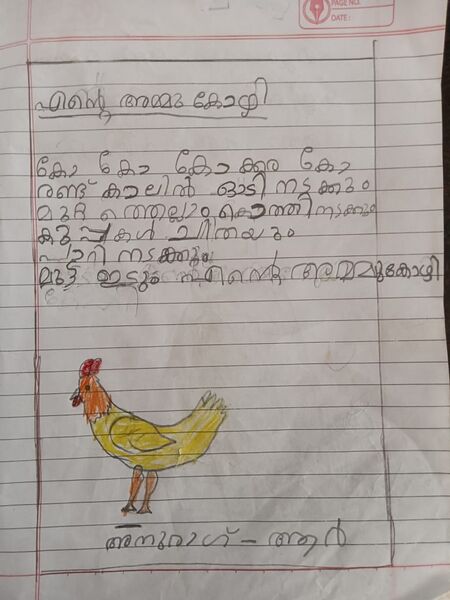 PAGE NO.
DATE:
എന്റെ അമ്മു കോഴി
കോ കോ കോക്കര കോ
രണ്ട് കാലിൽ ഓടി നടക്കും
മുറ്റത്തെല്ലാം കൊത്തി നടക്കും
കുപ്പകൾ ചിതയും
പാറി നടക്കും
മുട്ട ഇടും എന്റെ അമ്മുകോഴി
അനുരാഗ് - ആർ